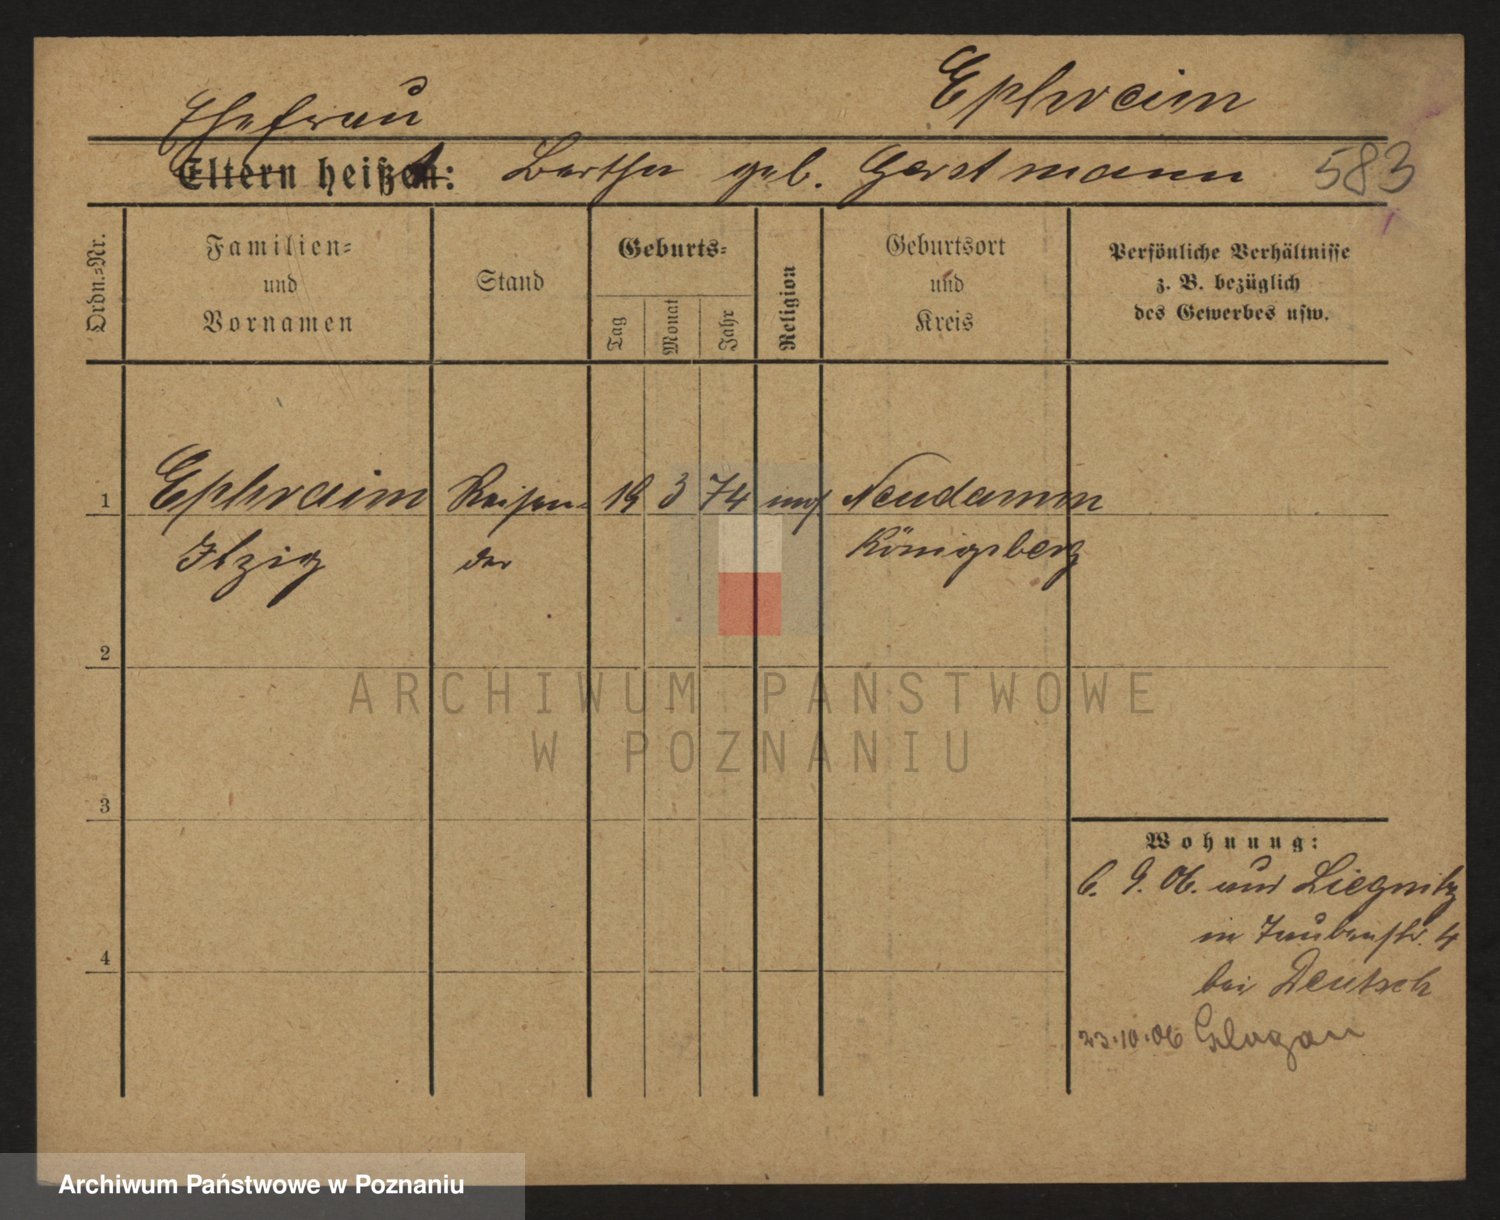 Ephraim
Ehefrau
Eltern heißen: t Bertha geb. Gerstmann 583
Ordn.=Nr.
Familien=
und
Vornamen
Stand
Geburts=
Tag
Monat
Jahr
Religion
Geburtsort
und
Kreis
Persönliche Verhältnisse
z. B. bezüglich
des Gewerbes usw.
1 Ephraim Reisen= 19 3 74 mos Neudamm
Itzig der Königsberg
2
3
4
ARCHIWUM PAŃSTWOWE
W POZNANIU
Wohnung:
6. 9. 06. aus Liegnitz
in Taubenstr. 4
bei Deutsch
23.10.06 Glogau
Archiwum Państwowe w Poznaniu